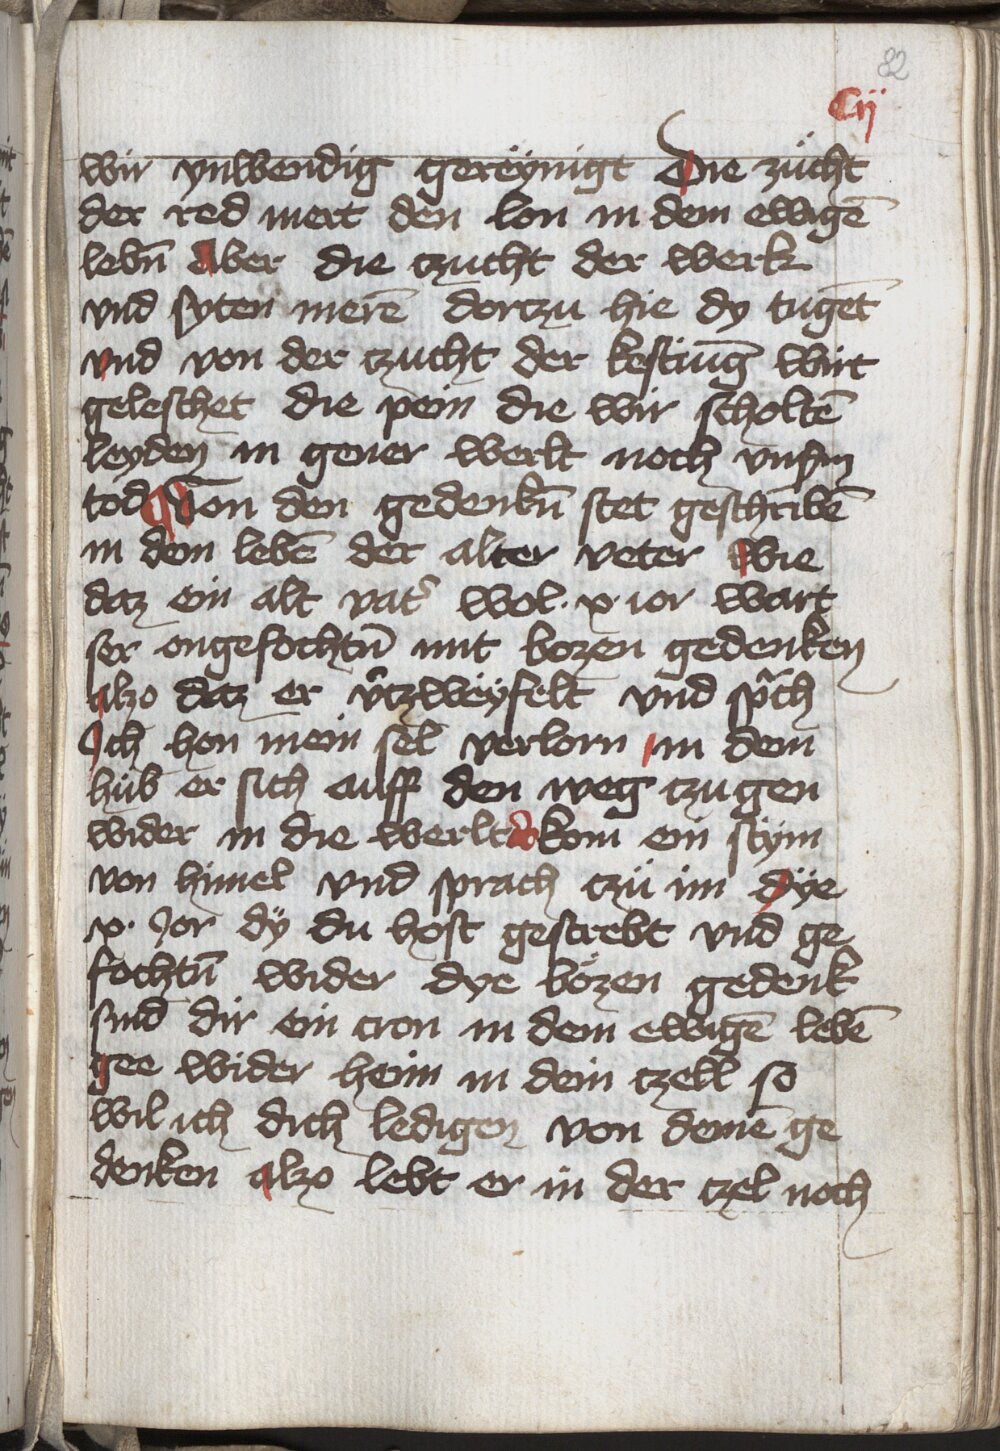 82
Cij
wir ynwendig gereÿnigt Die zücht
der red mert den lon in dem ewigē
lebn̄ Aber die czucht der werk
vnd syten merē dorczu hie dy tugēt
vnd von der czucht der kestiūg wirt
geleschet die pein die wir scholtē
leyden in gener werlt noch vnsm
tod Von den gedenkn̄ stet geschribē
in dem lebē der alter veter Wie
daz ein alt vat᷑ wol · x · ior wart
ser ongefochtn̄ mit bozen gedenken
alzo daz er v᷑czweÿfelt vnd sp̄ch
Ich hon mein sel verlorn in dem
hub er sich auff den weg czu gen
wider in die werlt do kom ein stÿm
von himel vnd sprach czü im dÿe
x · Jor dÿ du host gestrebt vnd ge
fochtn̄ wider dye bözen gedenk
sind dir ein cron in dem ewigē lebē
gee wider heim in dein czell so
wil ich dich ledigen von deinē ge
denken alzo lebt er in der czel noch